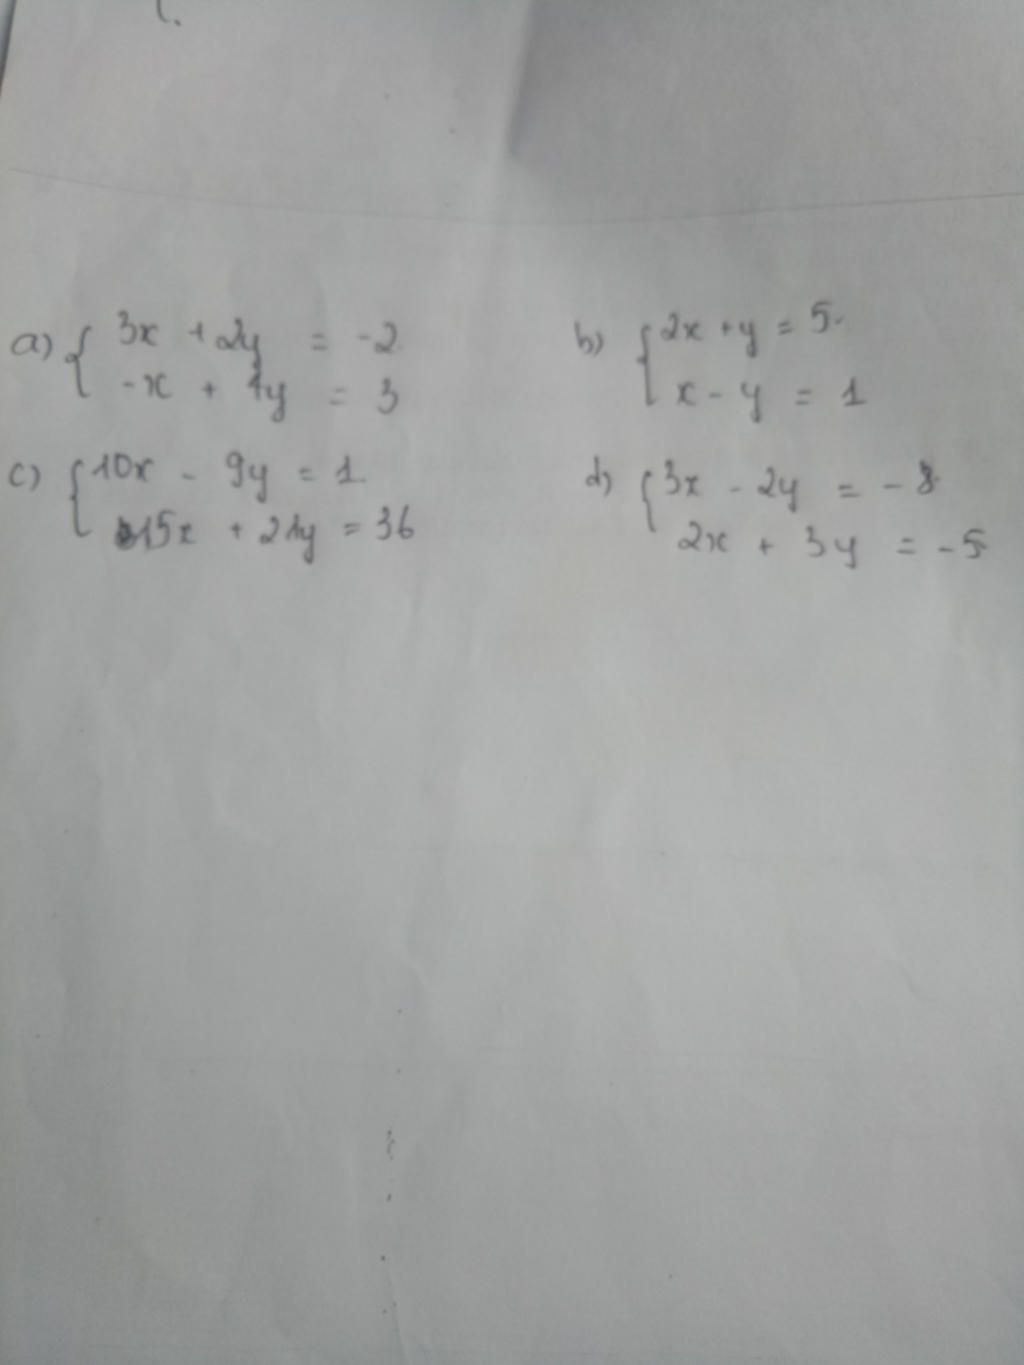 a) { 3x + 2y = -2
-x + 4y = 3
b) { 2x + y = 5
x - y = 1
c) { 10x - 9y = 1
15x + 21y = 36
d) { 3x - 2y = -8
2x + 3y = -5